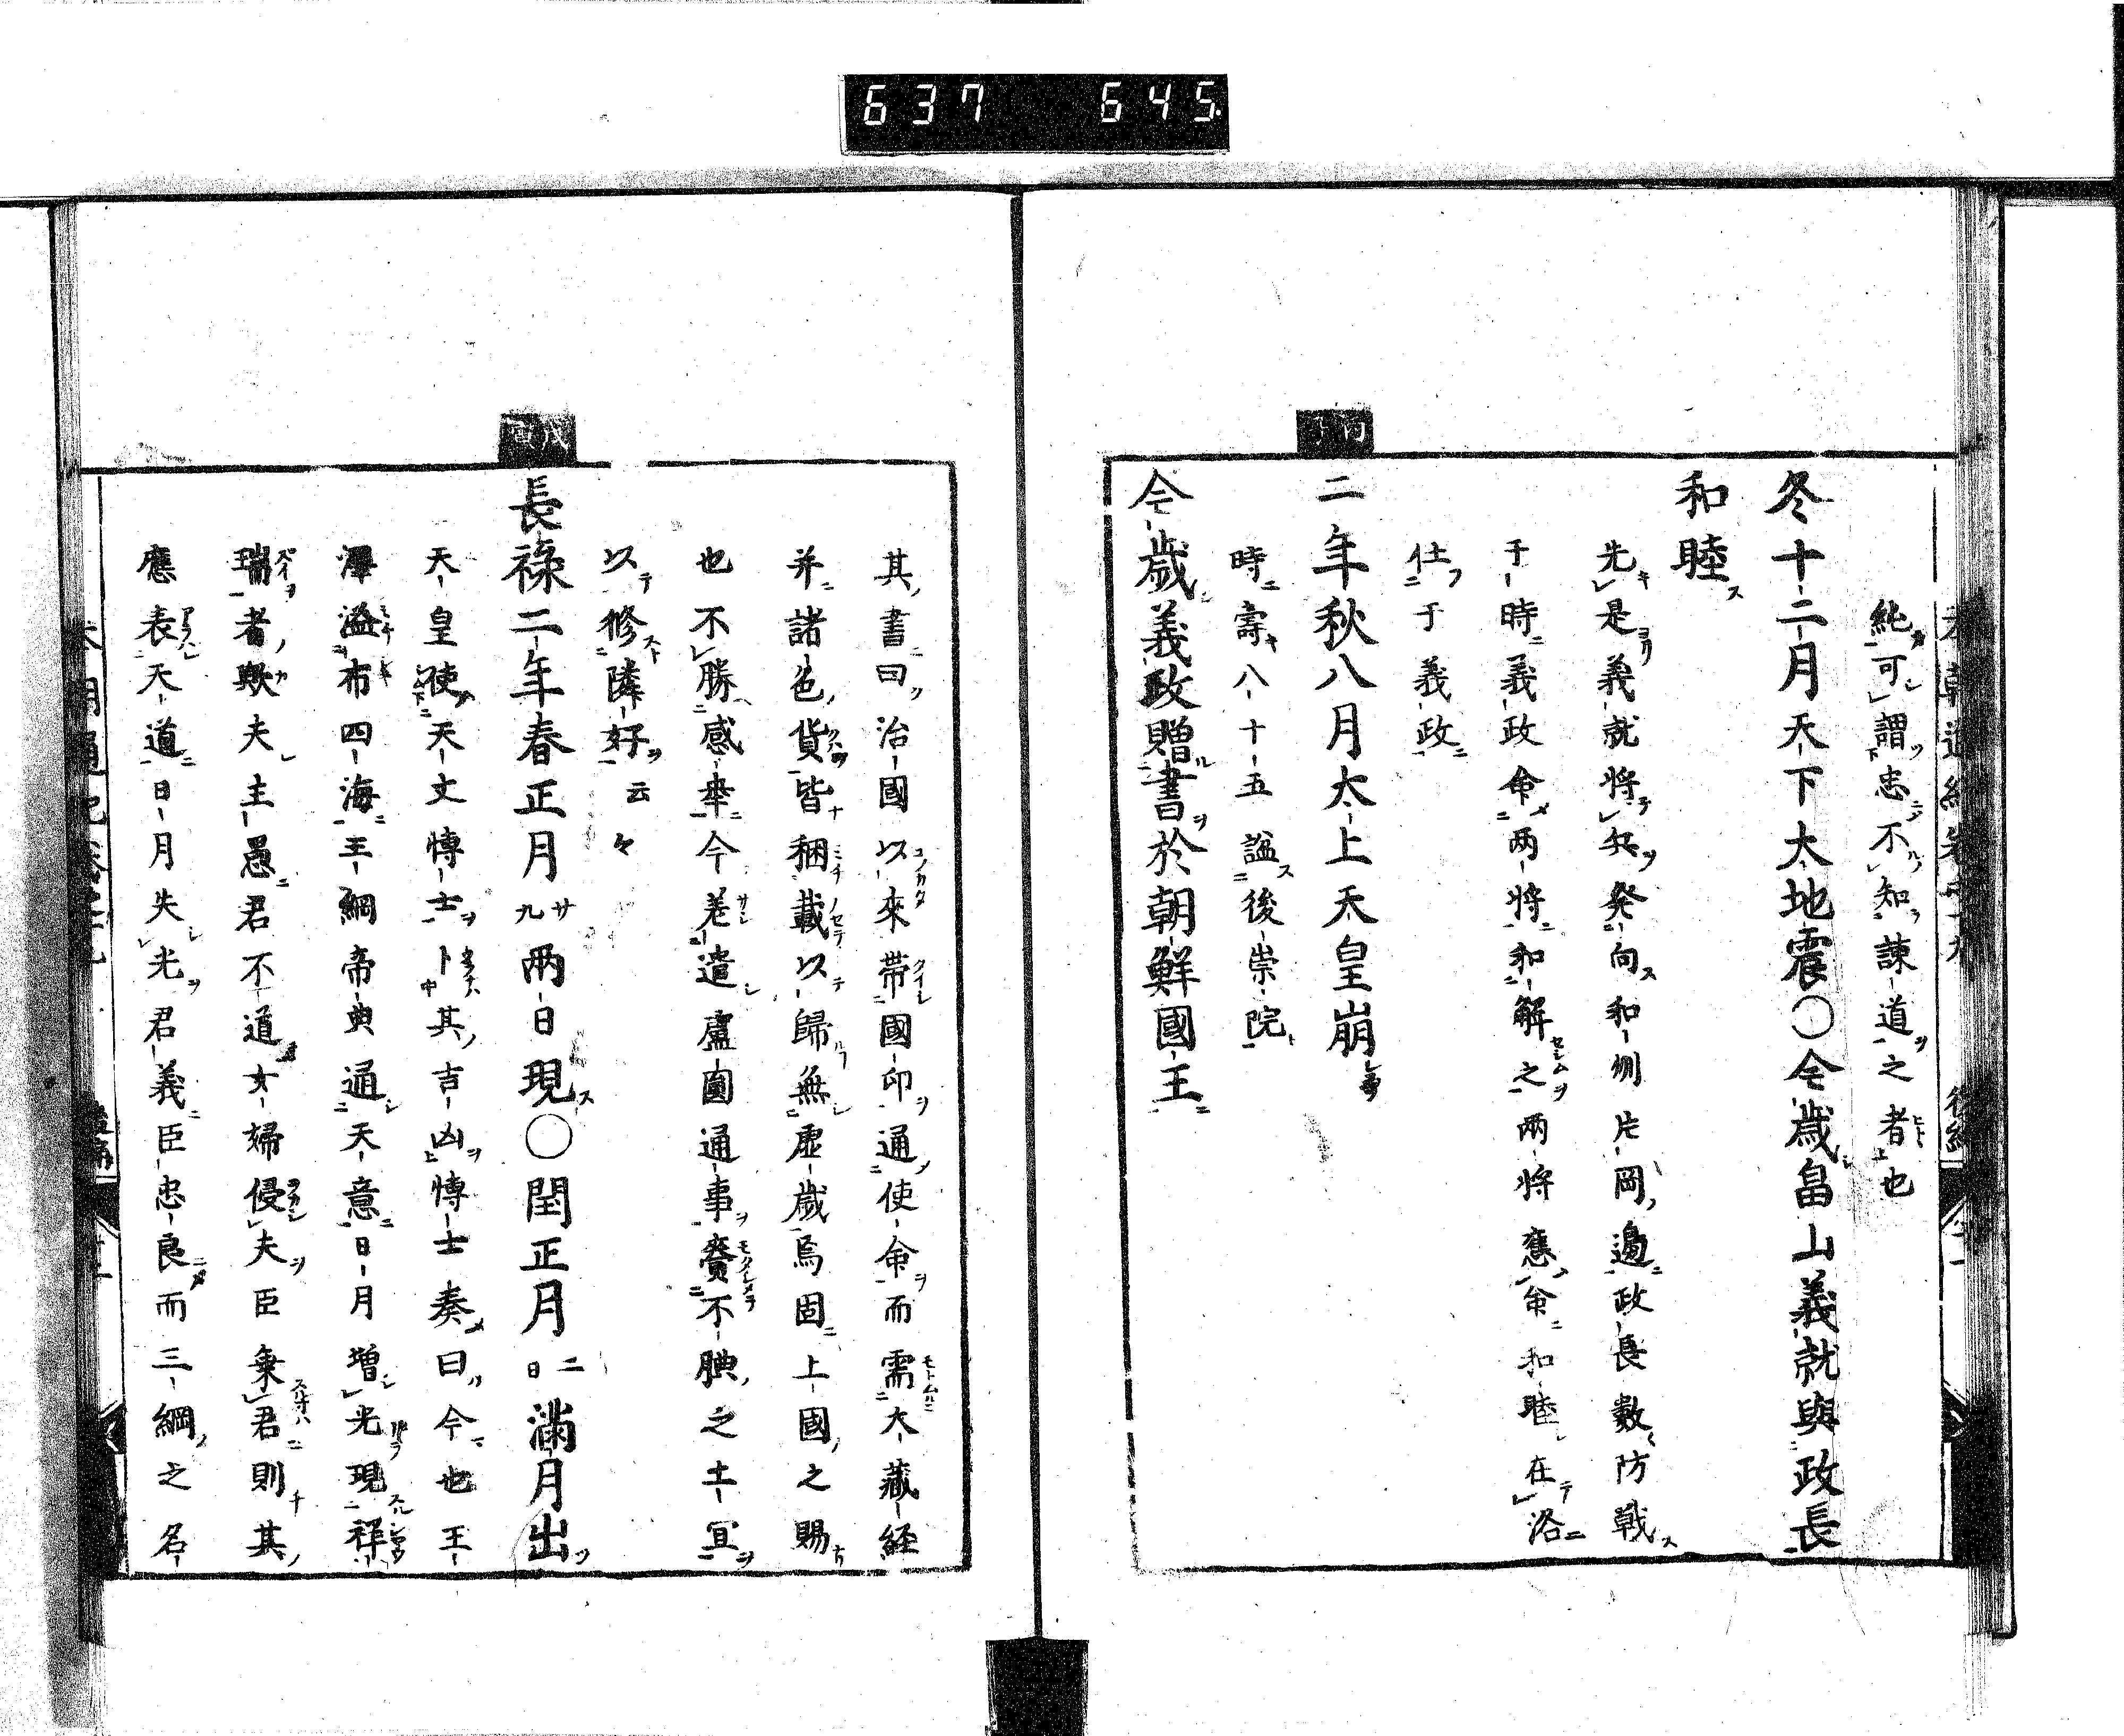 637 645
純可謂忠不知諫道之者也
冬十二月天下大地震○今歳畠山義就與政長
和睦
先是義就將兵発向和州片岡邊政長數防戰
于時義政命两將和解之两將應命和睦在洛
仕于義政
二年秋八月太上天皇崩
時壽八十五謚後崇院
今歳義政贈書於朝鮮國王
其書曰治國以來帯國印通使命而需大藏経
并諸色貨皆稛載以歸無虚歳焉固上國之賜
也不勝感幸今差遣盧圓通事賷不腆之土宜
以修隣好云々
戊寅
長祿二年春正月廿九两日現○閏正月二日滿月出
天皇使天文博士卜其吉凶博士奏曰今也王
澤溢布四海三綱帝典通天意日月増光現祥
瑞者歟夫主愚君不道女婦侵夫臣棄君則其
應表天道日月失光君義臣忠良而三綱之名